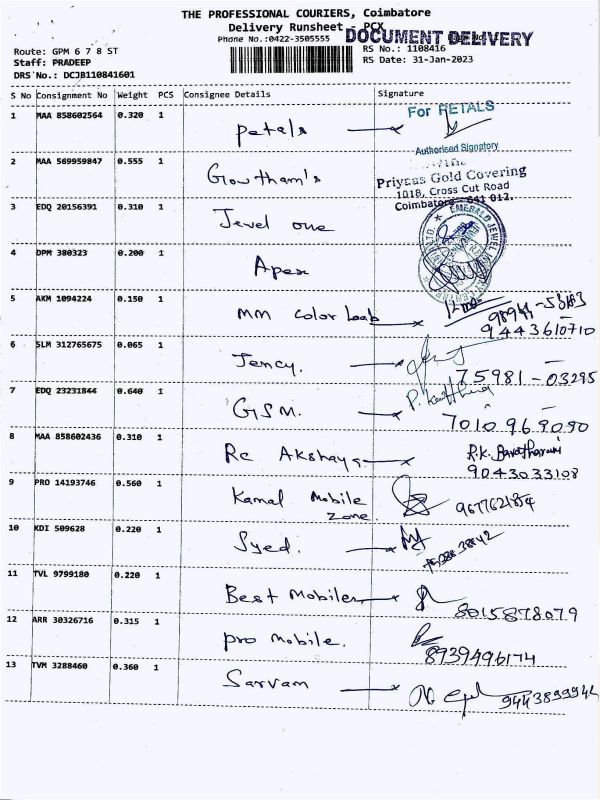 THE PROFESSIONAL COURIERS, Coimbatore
Delivery Runsheet - PCX
DOCUMENT DELIVERY
Phone No.:0422-3505555
Route: GPM 6 7 8 ST
RS No.: 1108416
Staff: PRADEEP
RS Date: 31-Jan-2023
DRS No.: DCJB110841601
S No Consignment No Weight PCS Consignee Details Signature
1 MAA 858602564 0.320 1 Petals For PETALS
Authorised Signatory
2 MAA 569959847 0.555 1 Gowtham's
Priyas Gold Covering
1018, Cross Cut Road
Coimbatore - 641 012.
3 EDQ 20156391 0.310 1 Jewel one EMERALD JEWEL
4 DPM 380323 0.200 1 Apex
5 AKM 1094224 0.150 1 MM Color Laab
9443610710
6 SLM 312765675 0.065 1 Jency.
75981-03295
7 EDQ 23231844 0.640 1 GSM.
7010969090
8 MAA 858602436 0.310 1 Re Akshaya R.K.
9043033108
9 PRO 14193746 0.560 1 Kamal Mobile
Zone.
10 KDI 509628 0.220 1 Syed.
11 TVL 9799180 0.220 1 Best Mobiles
8015878079
12 ARR 30326716 0.315 1 Pro Mobile.
8939496174
13 TVM 3288460 0.360 1 Sarvam